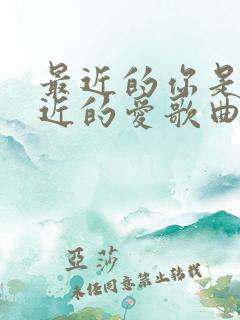 最近的你是
近的愛歌曲
亞莎
未任同意禁止转载